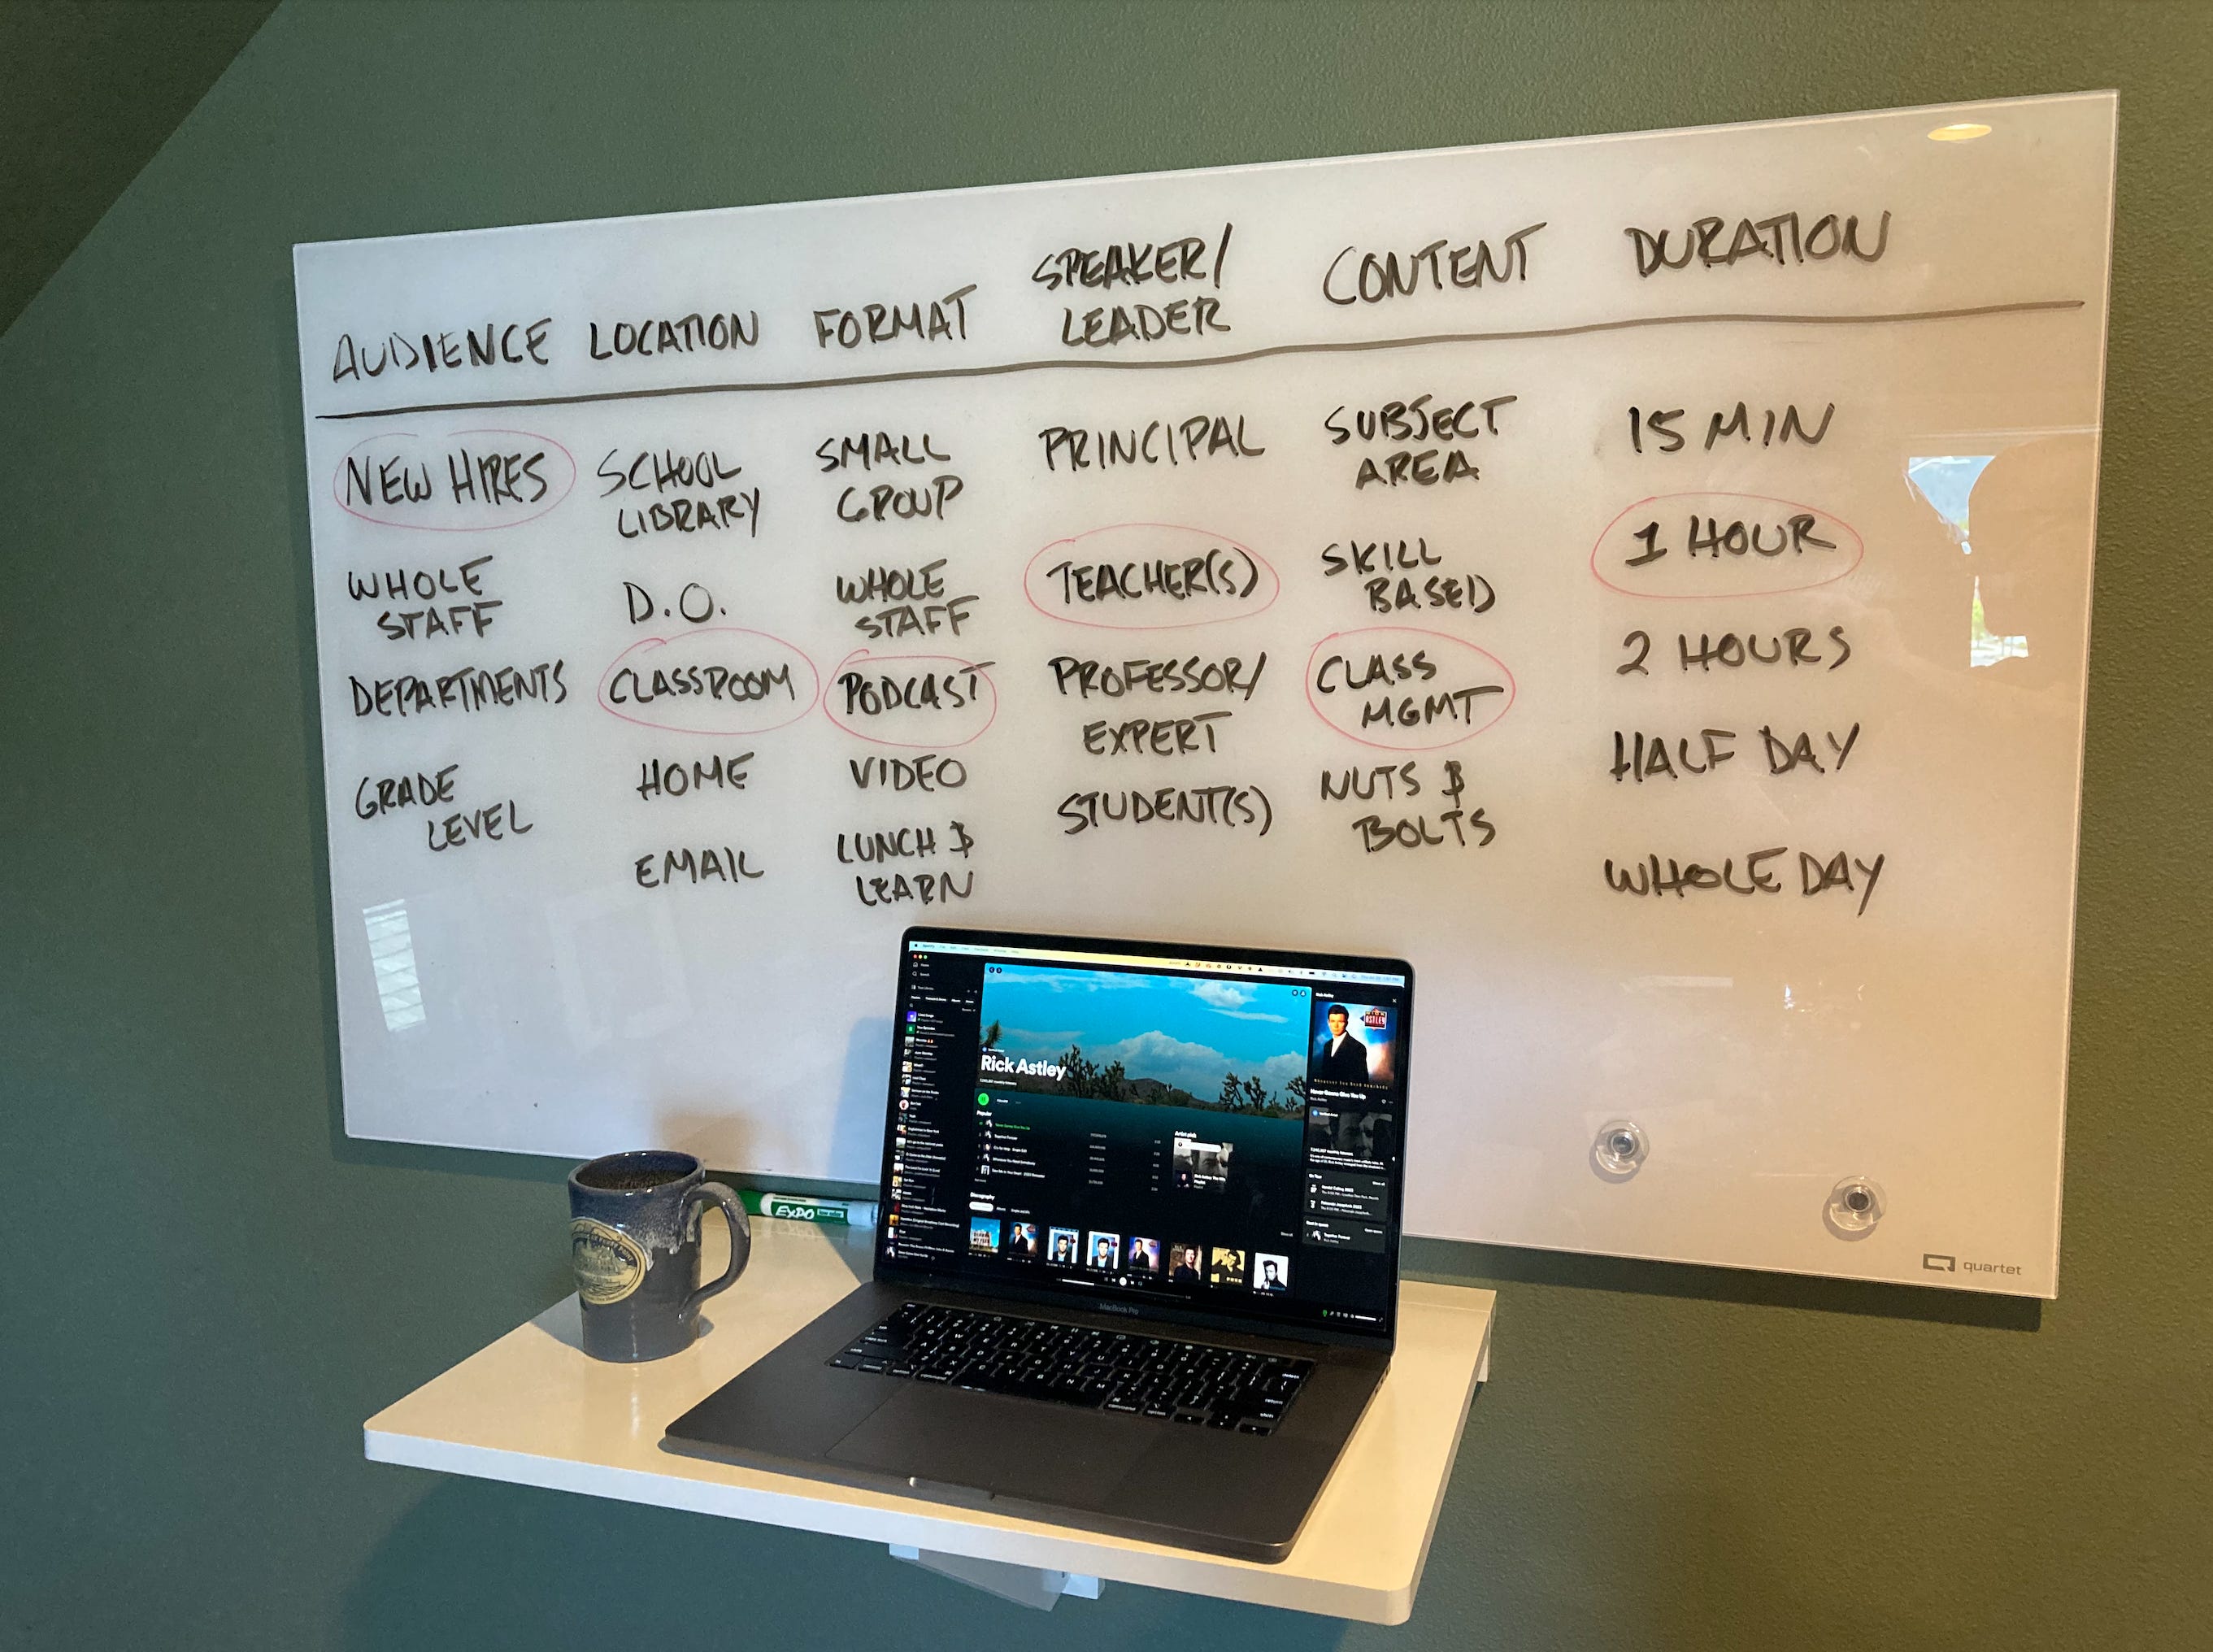 AUDIENCE LOCATION FORMAT SPEAKER/ LEADER CONTENT DURATION
NEW HIRES
WHOLE
STAFF
DEPARTMENTS
GRADE
LEVEL
SCHOOL
LIBRARY
D.O.
CLASSROOM
HOME
EMAIL
SMALL
GROUP
WHOLE
STAFF
PODCAST
VIDEO
LUNCH &
LEARN
PRINCIPAL
TEACHER(S)
PROFESSOR/
EXPERT
STUDENT(S)
SUBJECT
AREA
SKILL
BASED
CLASS
MGMT
NUTS &
BOLTS
15 MIN
1 HOUR
2 HOURS
HALF DAY
WHOLE DAY
quartet
EXPO
Rick Astley
Popular
Artist pick
Discography
Rick Astley
RICK
ASTLEY
Never Gonna Give You Up
Rick Astley
MacBook Pro